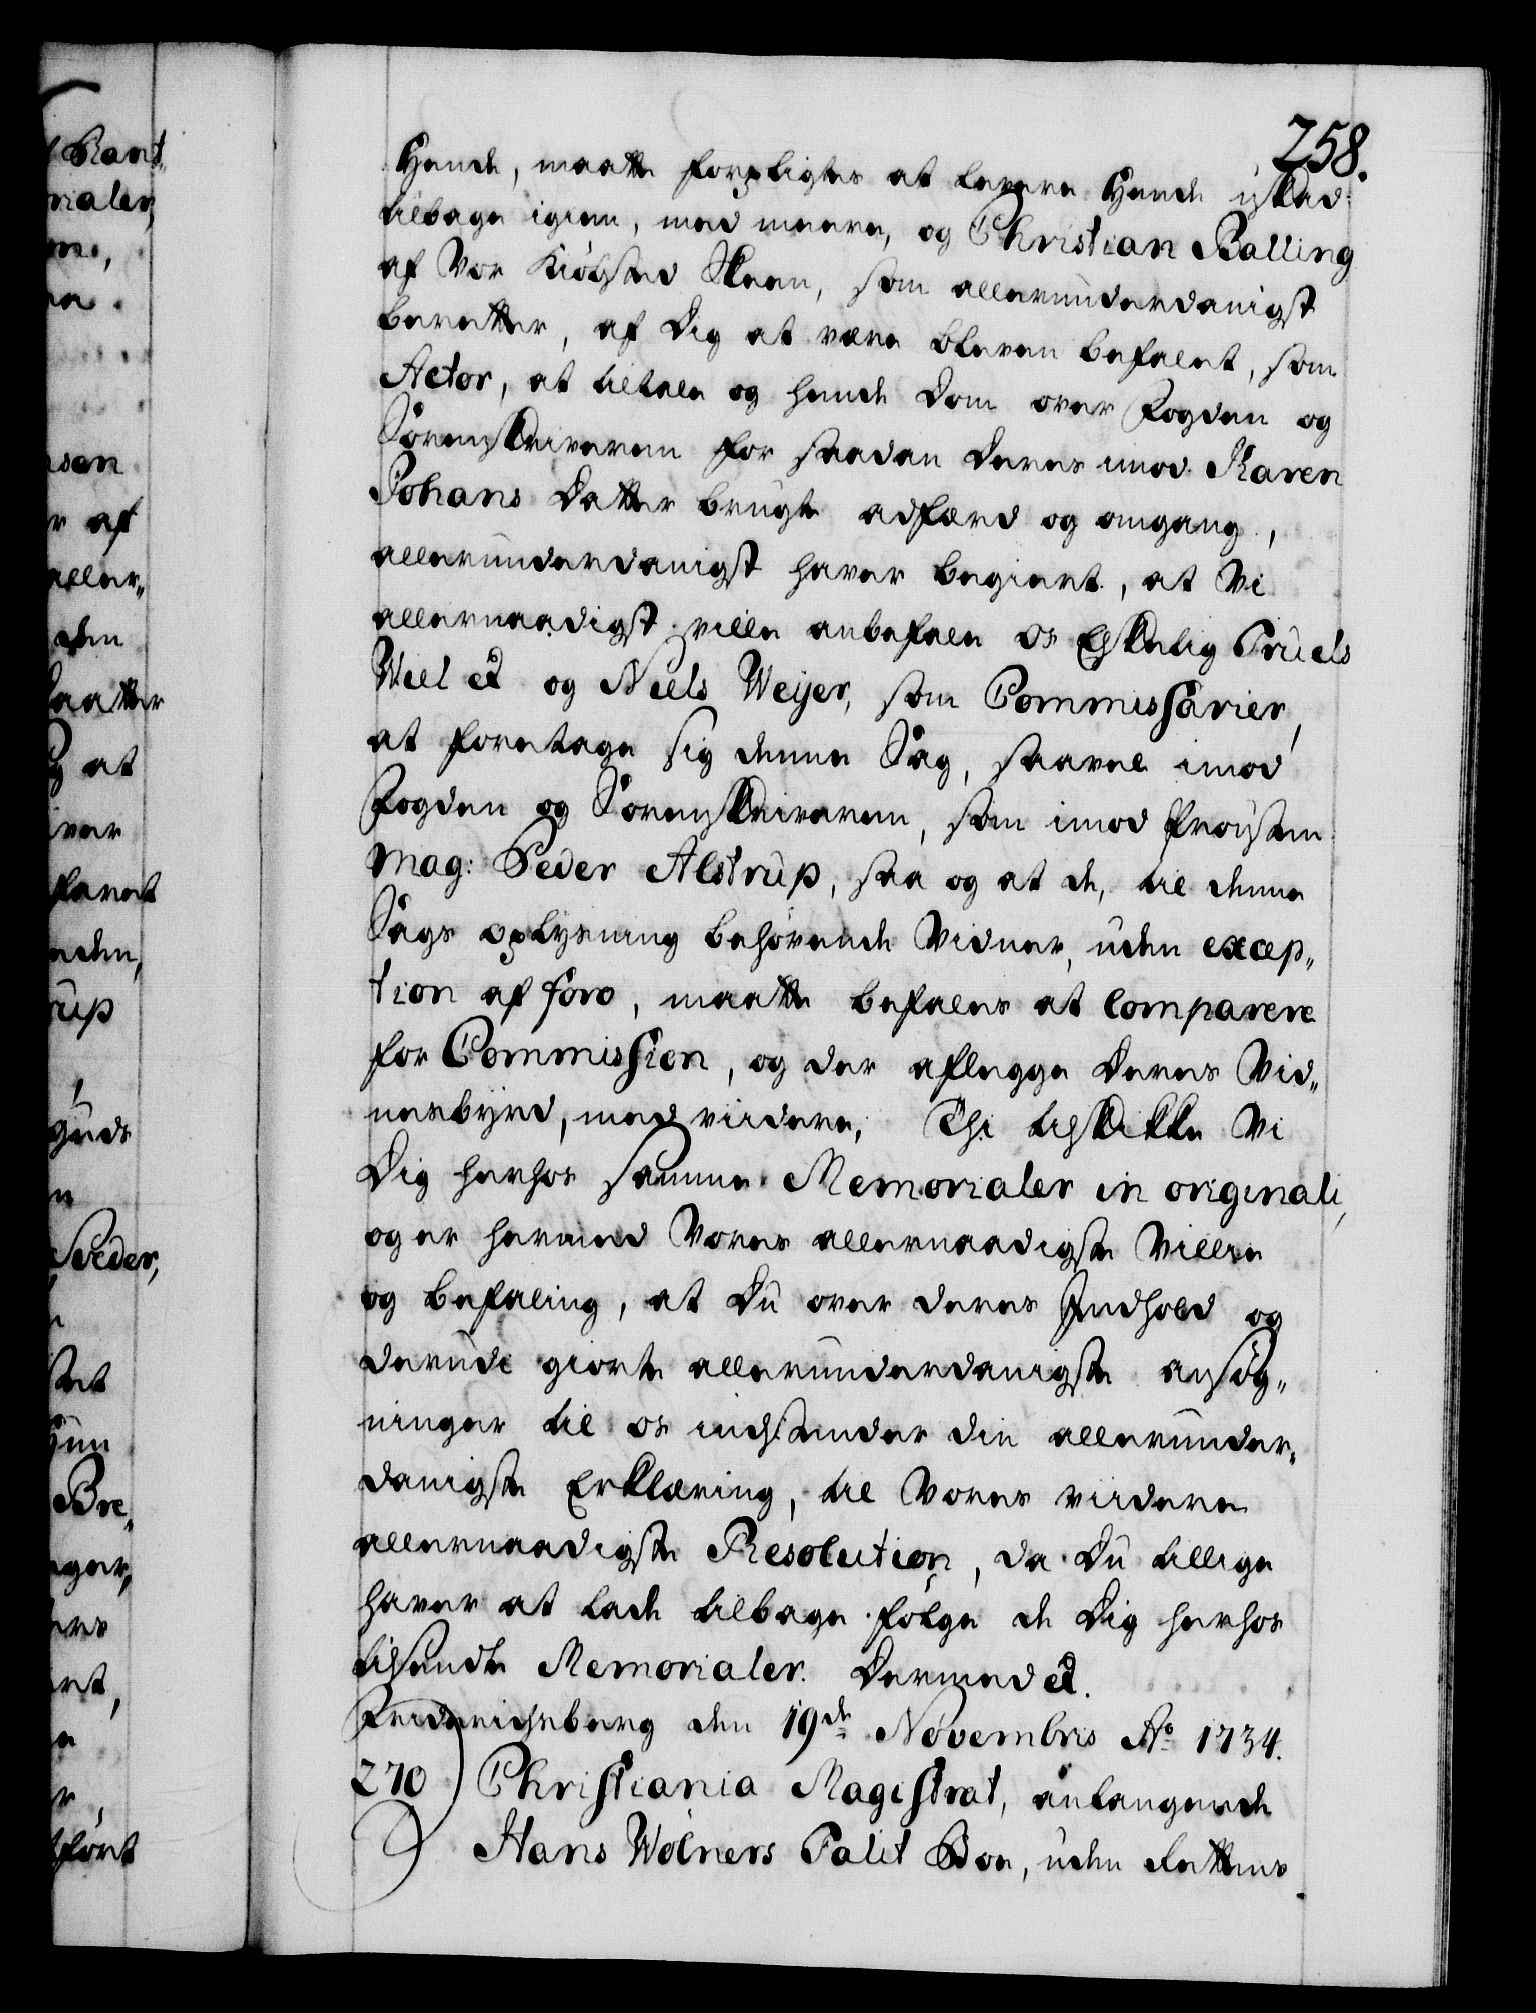 258.
Hende, maatte forpligtes at levere Hende uskad:
tilbage igien, med meere, og Christian Balling
af Vor Kiøbsted Skeen, som allerunderdanigst
beretter, af Dig at være bleven befalet, som
Actor, at tiltale og hende Dom over Fogden og
Sorenskriveren for saadan deres imod Karen
Johans Datter brugte adfærd og omgang,
allerunderdanigst haver begiert, at Vi
allernaadigst ville anbefale os Elskelig Truels
Wiel et og Niels Weyer, som Commissarier,
at foretage sig denne Sag, saavel imod
Fogden og Sorenskriveren, som imod Provsten
Mag: Peder Alstrup, saa og at de, til denne
Sags oplysning behørende Vidner, uden excep„
tion af foro, maatte befales at comparere
for Commission, og der aflegge deres Vid„
nesbyrd, med viidere, Thi tilskikke Vi
Dig herhos samme Memorialer in originali,
og er hermed Vores allernaadigste Villie
og befaling, at Du over deres Indhold og
derudi giorte allerunderdanigste ansøg„
ninger til os indsender din allerunder„
danigste Erklæring, til Vores viidere
allernaadigste Resolution, da Du tillige
haver at lade tilbage følge de Dig herhos
tilsendte Memorialer. Dermed et.
Friderichsberg den 19de Novembris Ao 1734.
270) Christiania Magistrat, anlangende
Hans Wølners Palit Boe, uden Rettens